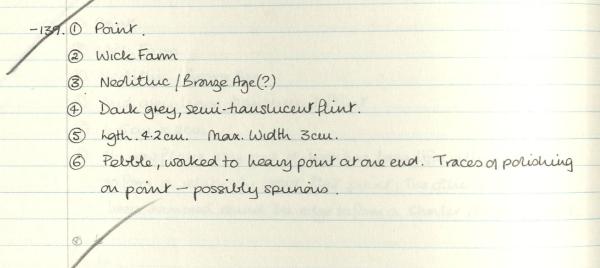 -139. ① Point.
② Wick Farm
③ Neolithic / Bronze Age (?)
④ Dark grey, semi-translucent flint.
⑤ lgth. 4.2cm. Max. Width 3cm.
⑥ Pebble, worked to heavy point at one end. Traces of polishing
on point – possibly spurious.